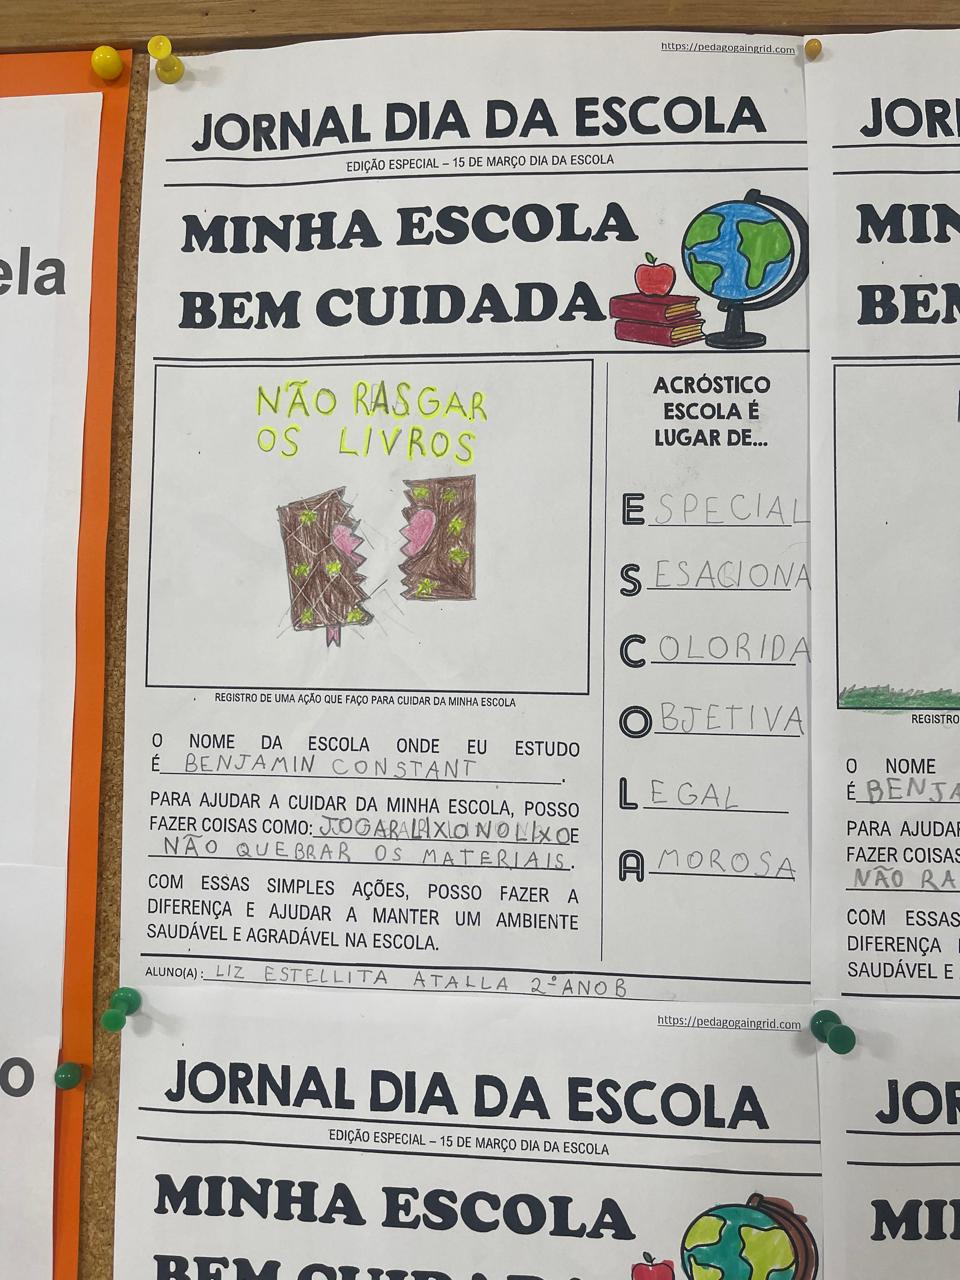 https://pedagogaingrid.com
JORNAL DIA DA ESCOLA
EDIÇÃO ESPECIAL – 15 DE MARÇO DIA DA ESCOLA
MINHA ESCOLA
BEM CUIDADA
NÃO RASGAR
OS LIVROS
REGISTRO DE UMA AÇÃO QUE FAÇO PARA CUIDAR DA MINHA ESCOLA
O NOME DA ESCOLA ONDE EU ESTUDO
É BENJAMIN CONSTANT.
PARA AJUDAR A CUIDAR DA MINHA ESCOLA, POSSO
FAZER COISAS COMO: JOGAR LIXO NO LIXO E
NÃO QUEBRAR OS MATERIAIS.
COM ESSAS SIMPLES AÇÕES, POSSO FAZER A
DIFERENÇA E AJUDAR A MANTER UM AMBIENTE
SAUDÁVEL E AGRADÁVEL NA ESCOLA.
ACRÓSTICO
ESCOLA É
LUGAR DE...
ESPECIAL
SESACIONA
COLORIDA
OBJETIVA
LEGAL
AMOROSA
ALUNO(A): LIZ ESTELLITA ATALLA 2º ANO B
ela
o
JOR
MIN
BEM
REGISTRO
O NOME
É BENJA
PARA AJUDAR
FAZER COISAS
NÃO RA
COM ESSAS
DIFERENÇA E
SAUDÁVEL E
https://pedagogaingrid.com
JORNAL DIA DA ESCOLA
EDIÇÃO ESPECIAL – 15 DE MARÇO DIA DA ESCOLA
MINHA ESCOLA
BEM CUIDADA
JO
MI